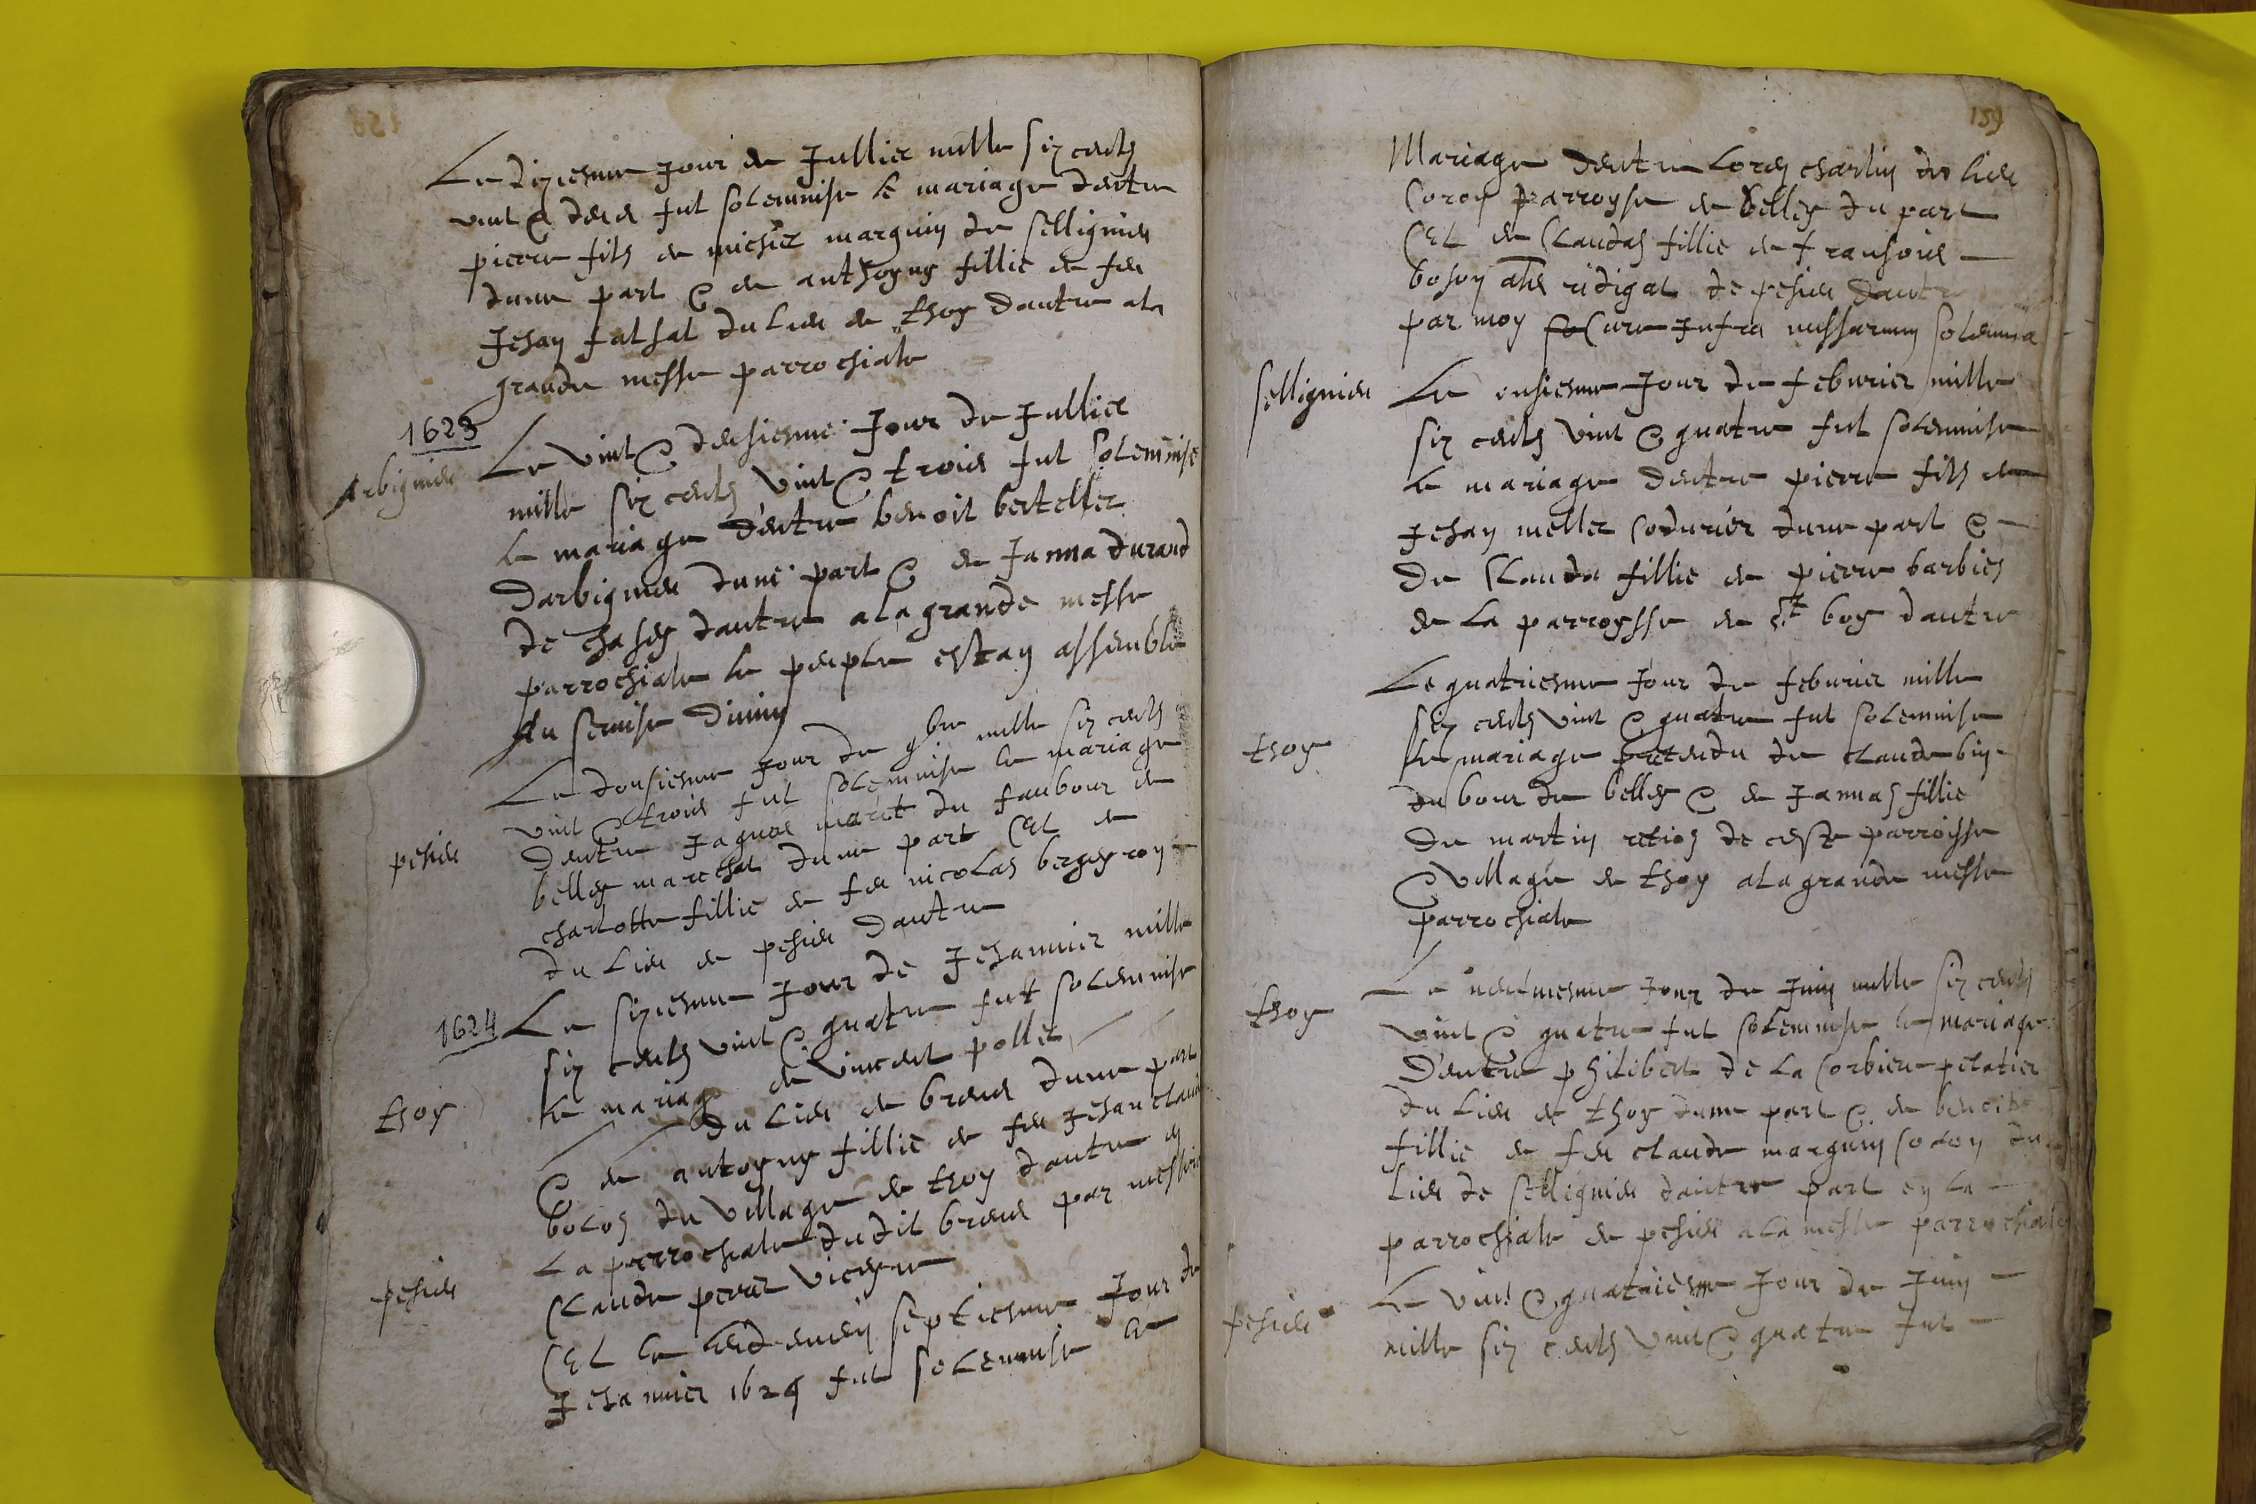 Le diziesme Jour de Jullier mille siz cents
vint & deus fut solemnise le mariage dentre
pierre fils de michiel marguin de sellignieu
dune part & de anthoyne fillie de feu
Jehan falsat du lieu de thoy dautre a la
grande messe parrochiale
1623
Arbignieu
Le vint & deusiesme Jour de Jullier
mille siz cents vint & trois fut solemnise
le mariage d'entre benoit berteller
Darbignieu dune part & de Janna durand
de chasey dautre a la grande messe
parrochiale le peuple estan assemble
Au servise divin
pesieu
Le dousiesme Jour de 9bre mille siz cents
vint & trois fut solemnise le mariage
dentre Jaques du faubour de
belley marchat dune part Et de
charlotte fillie de feu nicolas bergeyron
du lieu de pesieu dautre
1624
Le siziesme Jour de Jehannier mille
siz cents vint & quatre fut solemnise
thoy
le mariage de vincent pollet
du lieu de breus dune part
& de antoyne fillie de feu Jehan claude
bolos du village de thoy dautre en
La parrochiale dudit breus par messire
Claude perret vicayre
pesieu
Et le septiesme Jour de
Jehannier 1624 fut solemnise le
159
Mariage dentre Lorens charlin du lieu
Coron parroysse de belley du part
Et de Claudas fillie de fransois
boson alias ridigat de pesieu dautre
par moy Cure Infra missarum solemnia
sellignieu
Le onsiesme Jour de feburier mille
siz cents vint & quatre fut solemnise
le mariage dentre pierre fils de
Jehan mellet Codurier dune part &
de Clauda fillie de pierre barbier
de la parroysse de st boy dautre
Le quatriesme Jour de feburier mille
siz cents vint & quatre fut solemnise
thoy
le mariage pretendu de claude bin
du bour de belley & de Jannas fillie
de martin de ceste parroisse
& village de thoy a la grande messe
parrochiale
thoy
Le neufviesme Jour de Juin mille siz cents
vint & quatre fut solemnise le mariage
D'entre philibert de la Corbiere pelatier
du lieu de thoy dune part & de benoite
fillie de feu claude marguin solon du
lieu de sellignieu dautre part en la
parrochiale de pesieu a la messe parrochiale
pesieu
Le vint & quatriesme Jour de Juin
mille siz cents vint & quatre fut